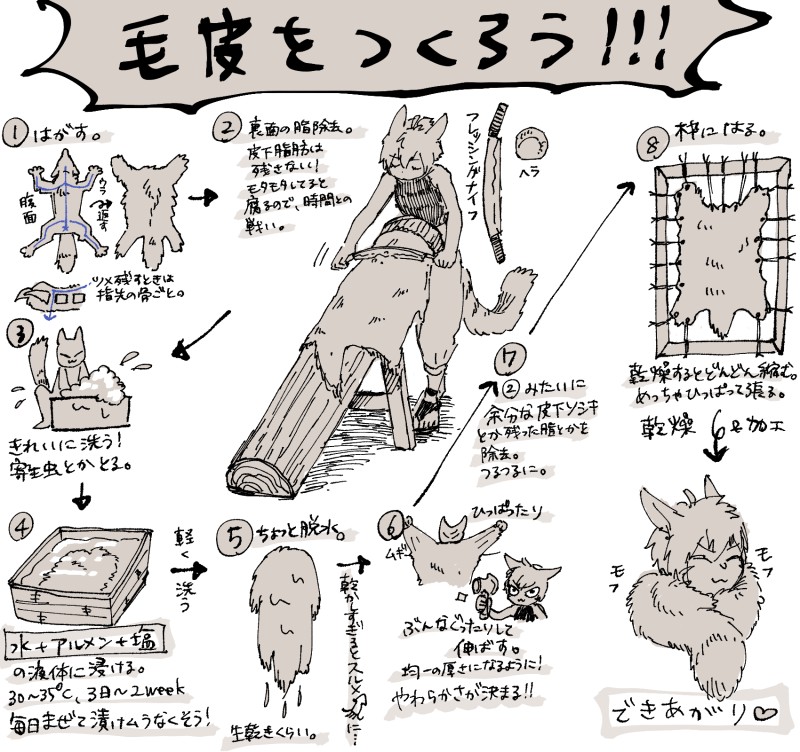 毛皮をつくろう!!!
① はがす。
腹面
ウラ返す
ツメ残すときは
指先の骨ごと。
② 裏面の脂除去。
皮下脂肪は
残さない!
モタモタしてると
腐るので、時間との
戦い。
フレッシングナイフ
ヘラ
③
きれいに洗う!
寄生虫とかとる。
④
水+アルメン+塩
の液体に浸ける。
30~35℃、3日~2week
毎日まぜて漬けムラなくそう!
軽く洗う
⑤ ちょっと脱水。
生乾きくらい。
乾かしすぎるとスルメみたいに…
⑥ ひっぱったり
ムギ
ぶんなぐったりして
伸ばす。
均一の厚さになるように!
やわらかさが決まる!!
⑦
②みたいに
余分な皮下ソシキ
とか残った脂とかを
除去。
つるつるに。
⑧ 枠にはる。
乾燥するとどんどん縮む。
めっちゃひっぱって張る。
乾燥 &加工
モフ
モフ
できあがり♡